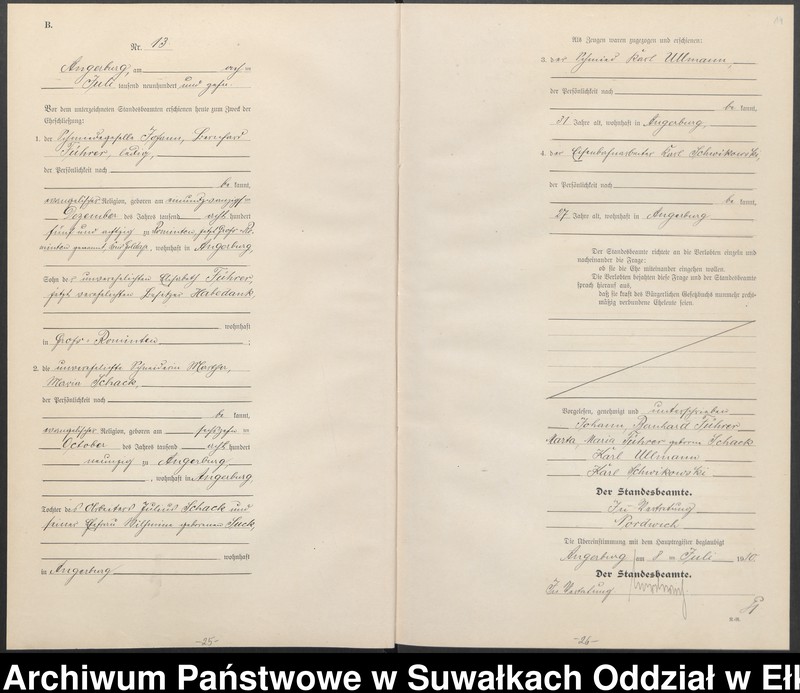 B.
Nr. 13
Angerburg, am acht ten
Juli tausend neunhundert und zehn.
Vor dem unterzeichneten Standesbeamten erschienen heute zum Zweck der
Eheschließung:
1. der Schmiedegeselle Johann, Bernhard
Führer, ledig,
der Persönlichkeit nach
be kannt,
evangelischer Religion, geboren am neunundzwanzigsten
Dezember des Jahres tausend acht hundert
fünf und achtzig zu Rominten, jetzt Groß Ro-
minten genannt, wohnhaft in Angerburg,
Sohn der unverehelichten Elisabeth Führer,
jetzt verehelichten Besitzer Habedank,
wohnhaft
in Groß-Rominten ;
2. die unverehelichte Schneiderin Martha,
Maria Schack,
der Persönlichkeit nach
be kannt,
evangelischer Religion, geboren am sechszehnten
October des Jahres tausend acht hundert
neunzig zu Angerburg,
, wohnhaft in Angerburg,
Tochter des Arbeiters Julius Schack und
seiner Ehefrau Wilhelmine geborenen Suck,
wohnhaft
in Angerburg
-25-
Als Zeugen waren zugezogen und erschienen:
3. der Schmied Karl Ullmann,
der Persönlichkeit nach
be kannt,
31 Jahre alt, wohnhaft in Angerburg,
4. der Eisenbahnarbeiter Karl Schwikowski,
der Persönlichkeit nach
be kannt,
27 Jahre alt, wohnhaft in Angerburg
Der Standesbeamte richtete an die Verlobten einzeln und
nacheinander die Frage:
ob sie die Ehe miteinander eingehen wollen.
Die Verlobten bejahten diese Frage und der Standesbeamte
sprach hierauf aus,
daß sie kraft des Bürgerlichen Gesetzbuchs nunmehr recht-
mäßig verbundene Eheleute seien.
Vorgelesen, genehmigt und unterschrieben
Johann, Bernhard Führer
Marta, Maria Führer geborne Schack
Karl Ullmann
Karl Schwikowski.
Der Standesbeamte.
In Vertretung
Nordwich
Die Übereinstimmung mit dem Hauptregister beglaubigt
Angerburg am 8 ten Juli 1910.
Der Standesbeamte.
In Vertretung
-26-
Archiwum Państwowe w Suwałkach Oddział w Ełk